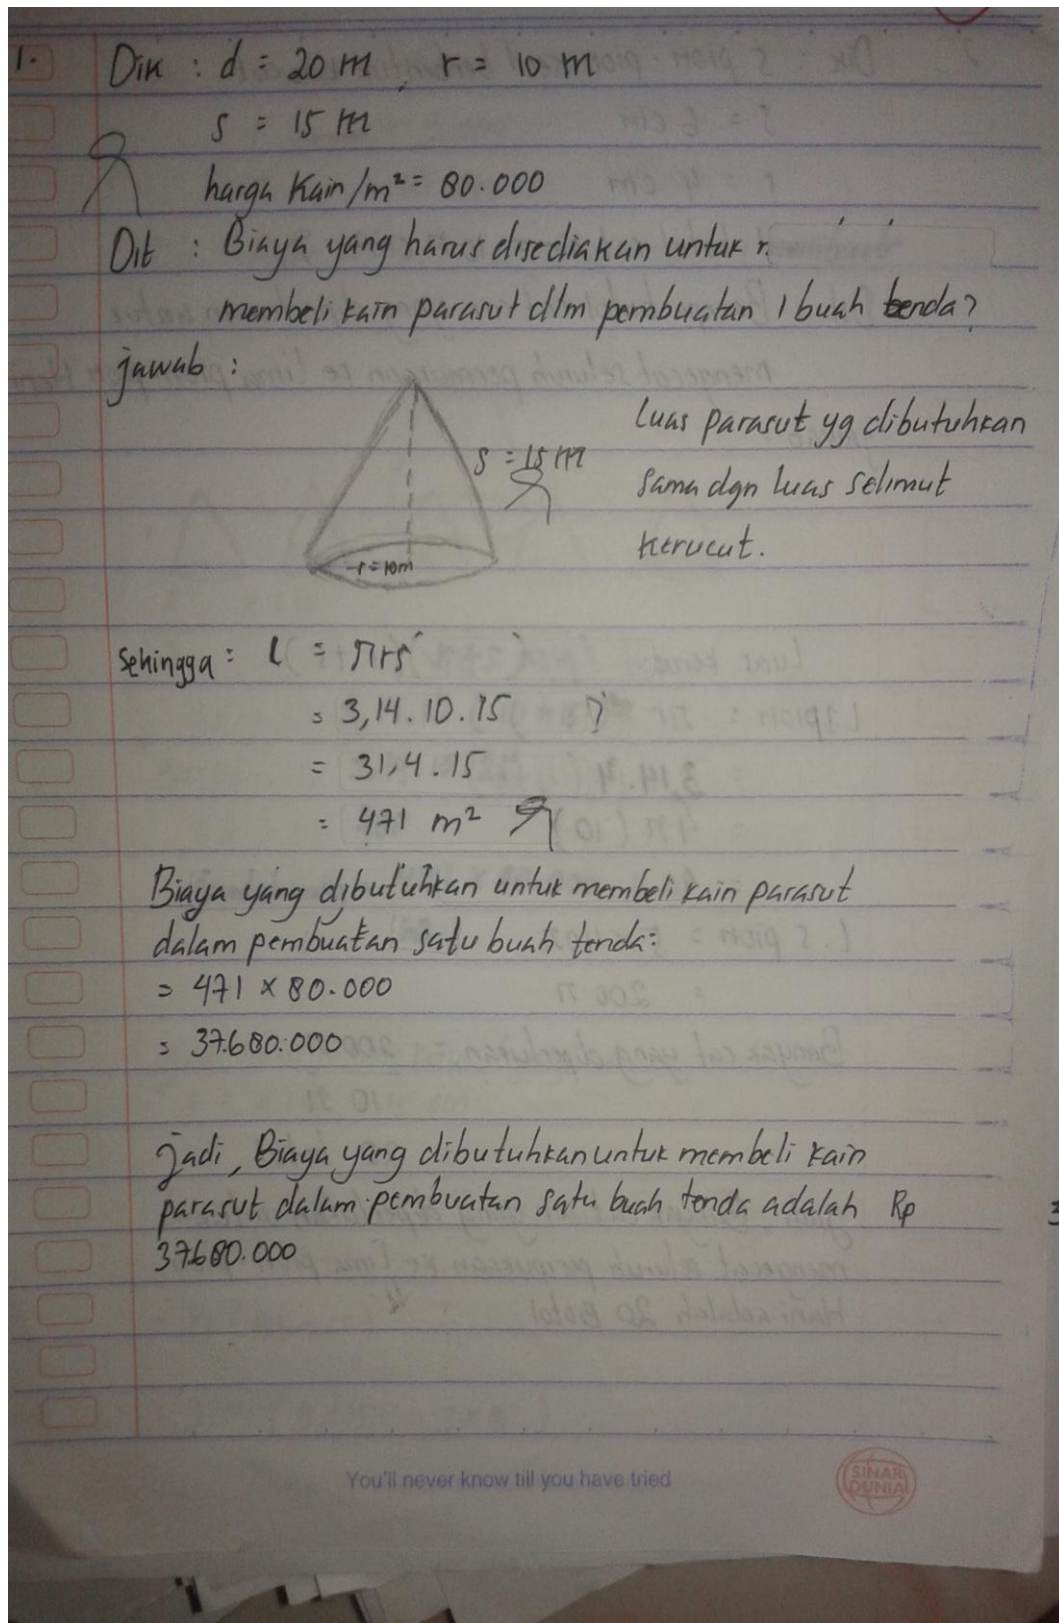 1. Dik : d = 20 m, r = 10 m
s = 15 m
harga kain/m² = 80.000
Dit : Biaya yang harus disediakan untuk r.
membeli kain parasut dlm pembuatan 1 buah tenda?
jawab :
Luas parasut yg dibutuhkan
s = 15 m
sama dgn luas selimut
kerucut.
r = 10m
Sehingga = L = πrs
= 3,14 . 10 . 15
= 31,4 . 15
= 471 m²
Biaya yang dibutuhkan untuk membeli kain parasut
dalam pembuatan satu buah tenda:
= 471 × 80.000
= 37.680.000
jadi, Biaya yang dibutuhkan untuk membeli kain
parasut dalam pembuatan satu buah tenda adalah Rp
37.680.000
You'll never know till you have tried
SINAR
DUNIA